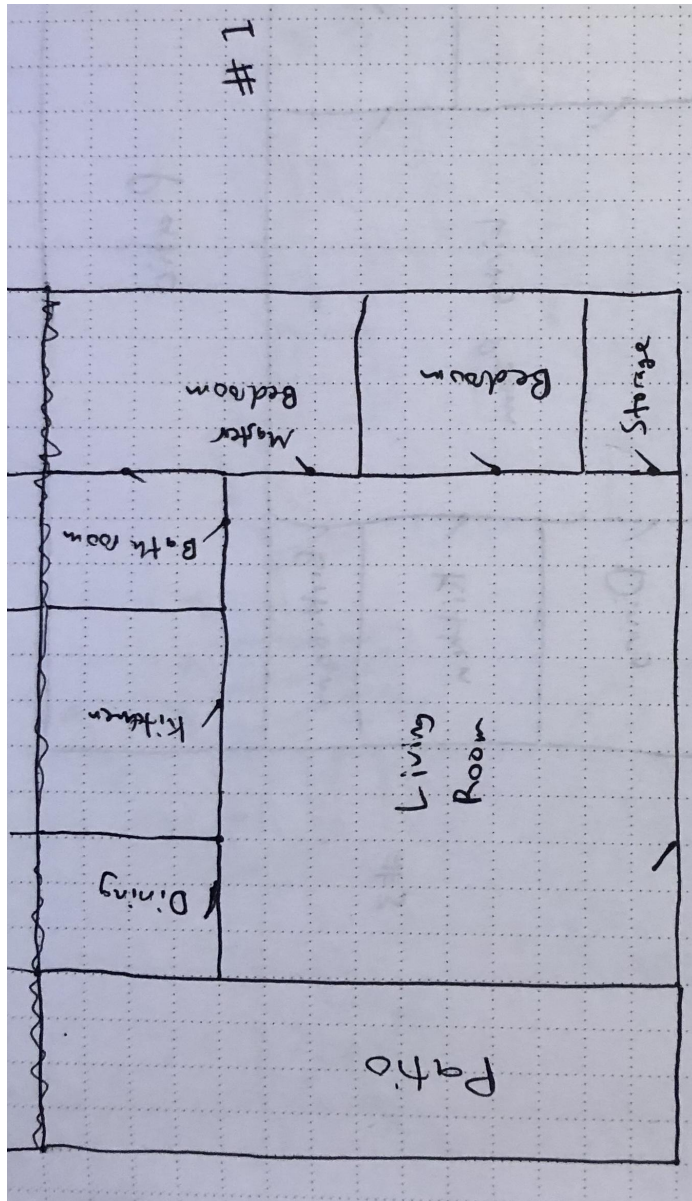 # 1
Storage
Bedroom
Master
Bedroom
Bathroom
Kitchen
Living
Room
Dining
Patio